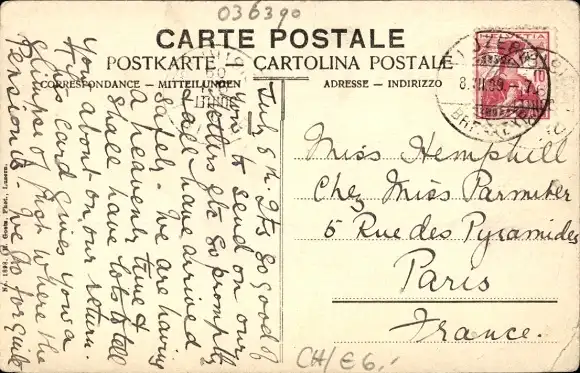 036390
CARTE POSTALE
POSTKARTE — CARTOLINA POSTALE
CORRESPONDANCE — MITTEILUNGEN
ADRESSE - INDIRIZZO
HELVETIA
10
LUZERN
8.VII.09.-7
BRF.
July 8th. It's so good of
you to send on our
letters etc so promptly
& all have arrived
safely. We are having
a heavenly time &
shall have lots to tell
you about on our return.
This card gives you a
glimpse of just where the
Pension is. We go for
Miss Hemphill
Chez Miss Parmiter
5 Rue des Pyramides
Paris
France.
CH/E6.-
Phot., Luzern.